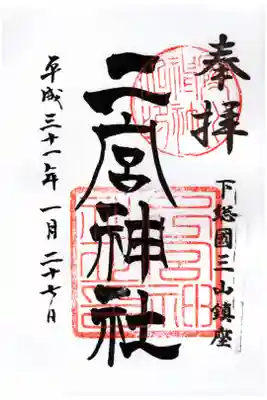 奉拝
下総國三山鎮座
二宮神社
平成三十一年一月二十七日